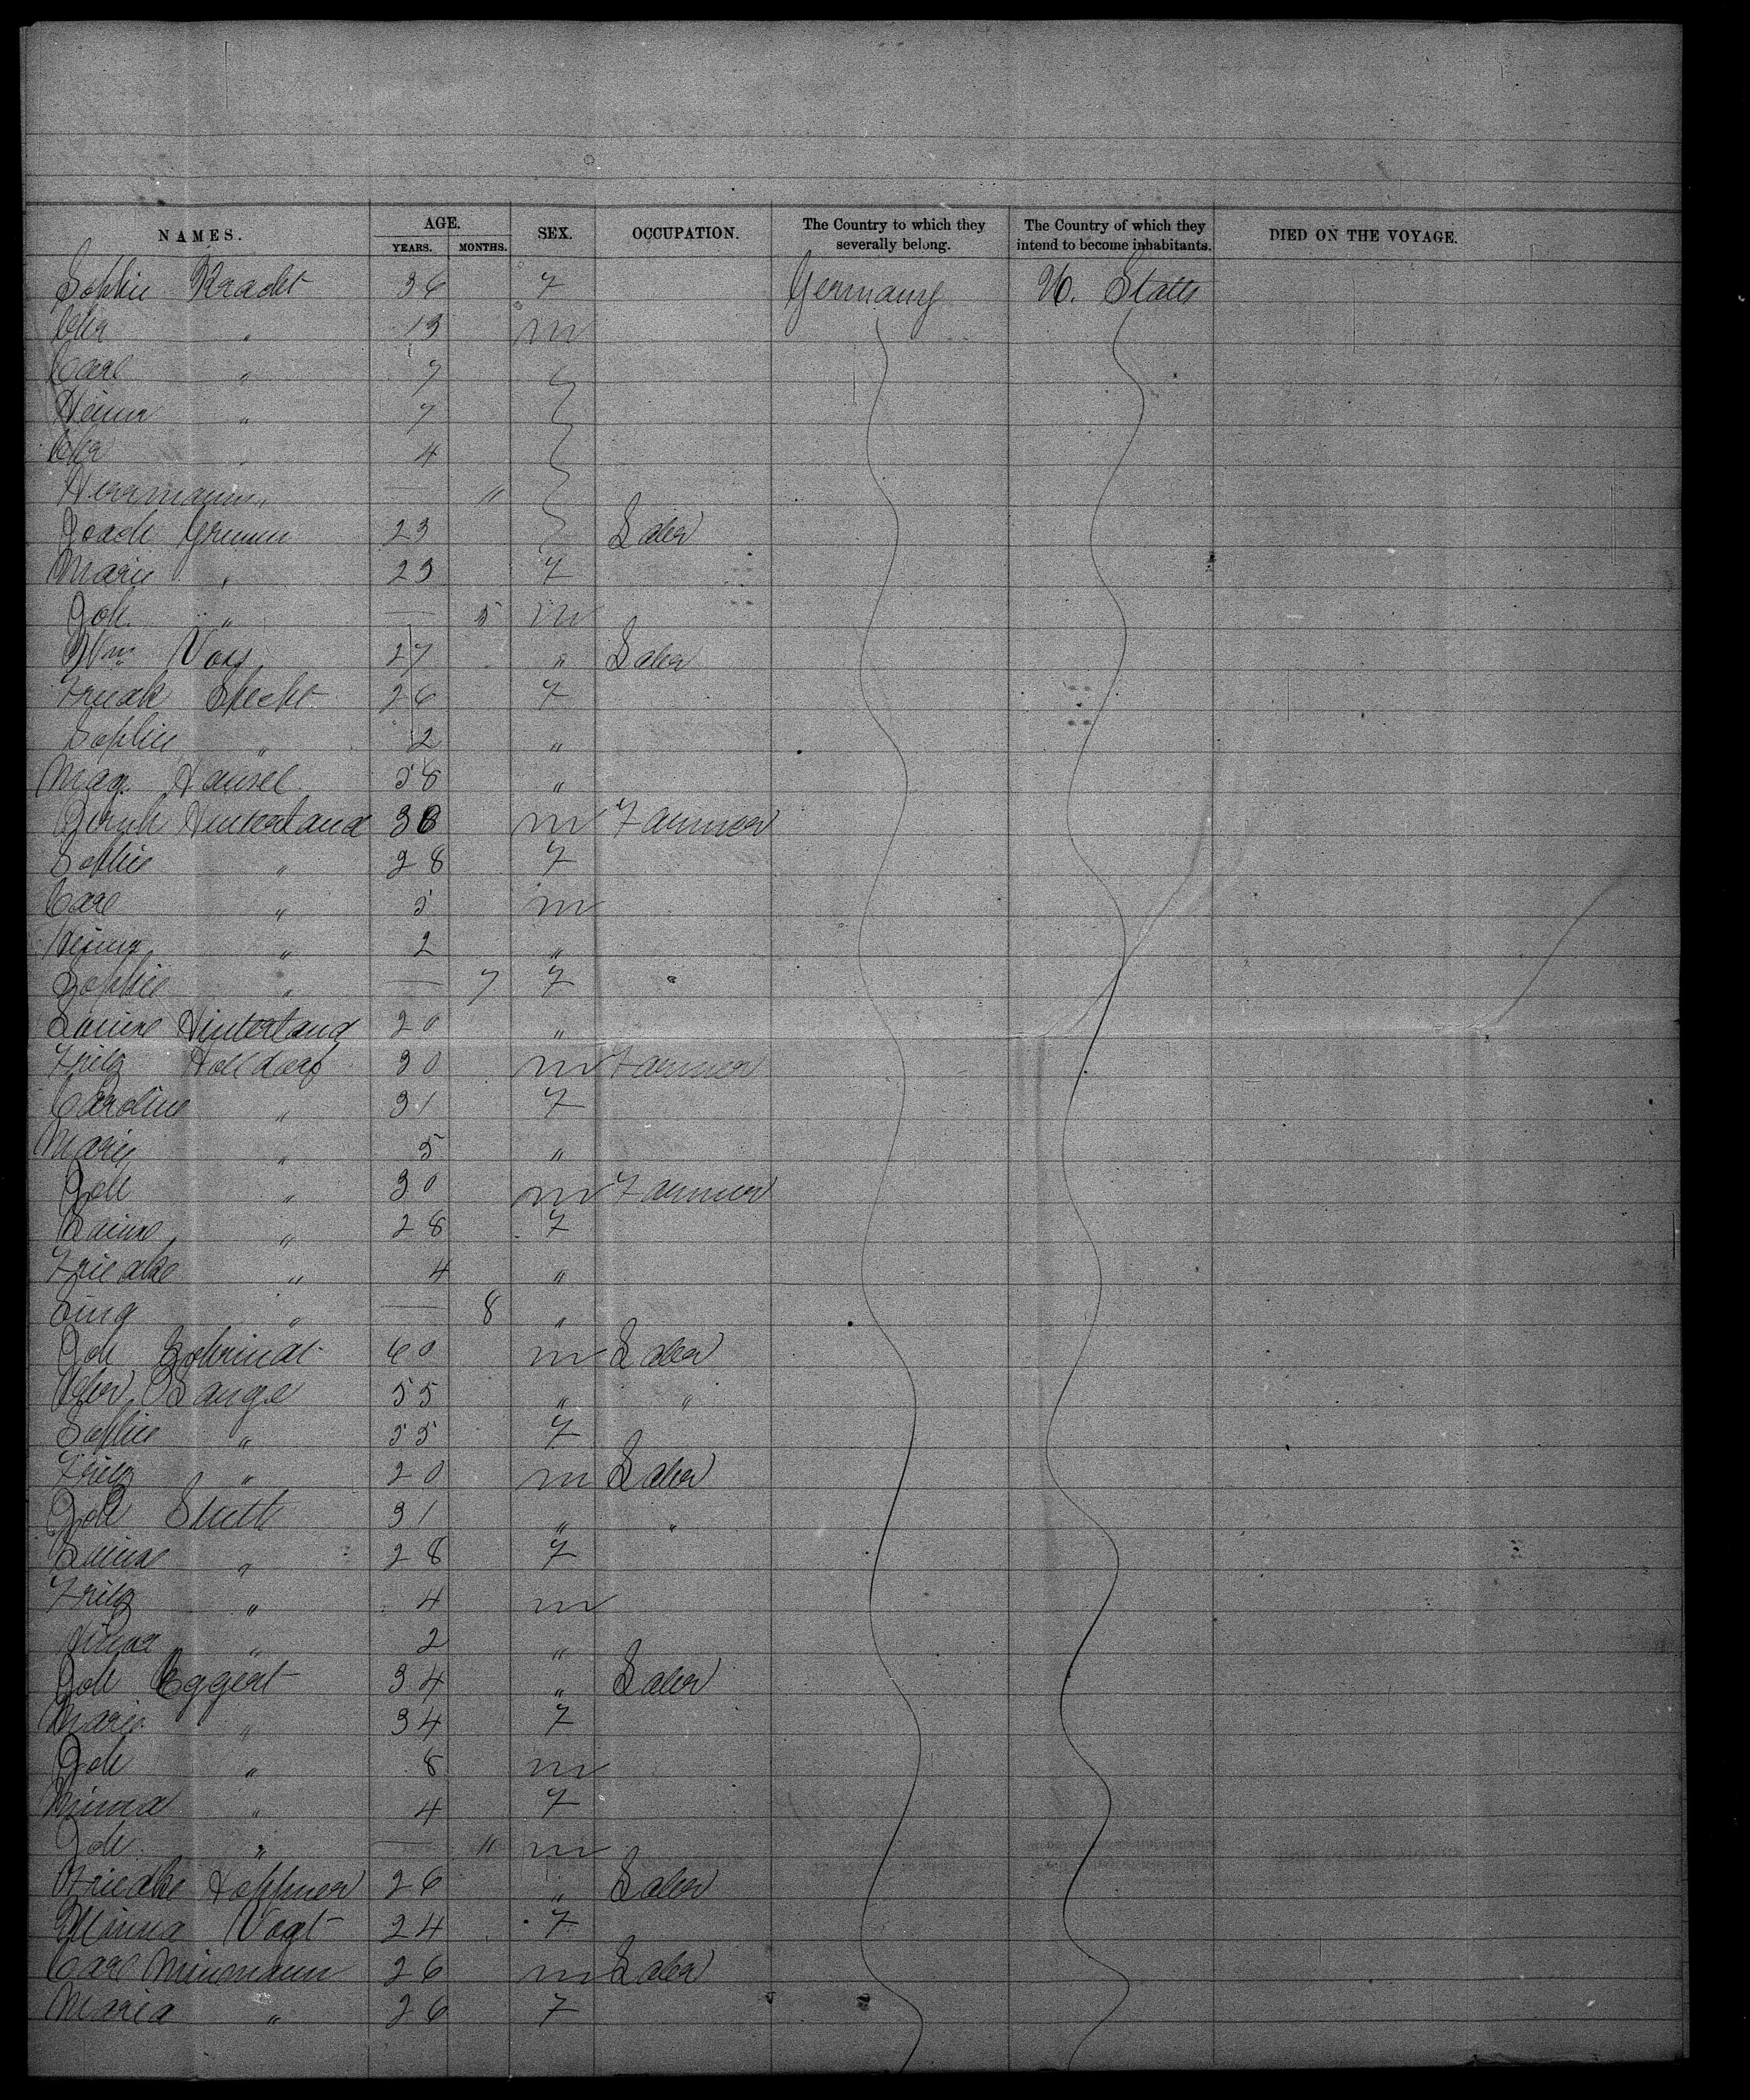 NAMES. AGE. SEX. OCCUPATION. The Country to which they severally belong. The Country of which they intend to become inhabitants. DIED ON THE VOYAGE.
YEARS. MONTHS.
Sophie Kracht 36 F Germany U. States
Chr " 13 m
Carl " 7
Heinr " 7
Chr " 4
Herrmann " — 11
Joach Grimm 23 Labor
Marie " 23 F
Joh. " — 5 m
Wm Voss 27 " Labor
Friedk Specht 26 F
Sophie " 2 "
Mag. Hansel 58 "
Hinterland 38 m Farmer
Sophie " 28 F
Carl " 5 m
Heinr " 2 "
Sophie " — 7 F "
Louise Hinterland 20 "
Fritz Holldorf 30 m Farmer
Caroline " 31 F
Marie " 5 "
Joh " 30 m Farmer
Louise " 28 F
Friedke " 4 "
Lina " — 8 "
Joh 60 m Labor
Bange 55 " "
Sophie " 55 F
Fritz " 20 m Labor
Joh Stuth 31 " "
Louise " 28 F
Fritz " 4 m
" 2 "
Joh Eggert 34 " Labor
Marie " 34 F
Joh " 8 m
Minna " 4 F
Joh " — 11 m
Friedke Hoppner 26 " Labor
Minna Vogt 24 F
Carl Miermann 26 m Labor
Maria " 26 F